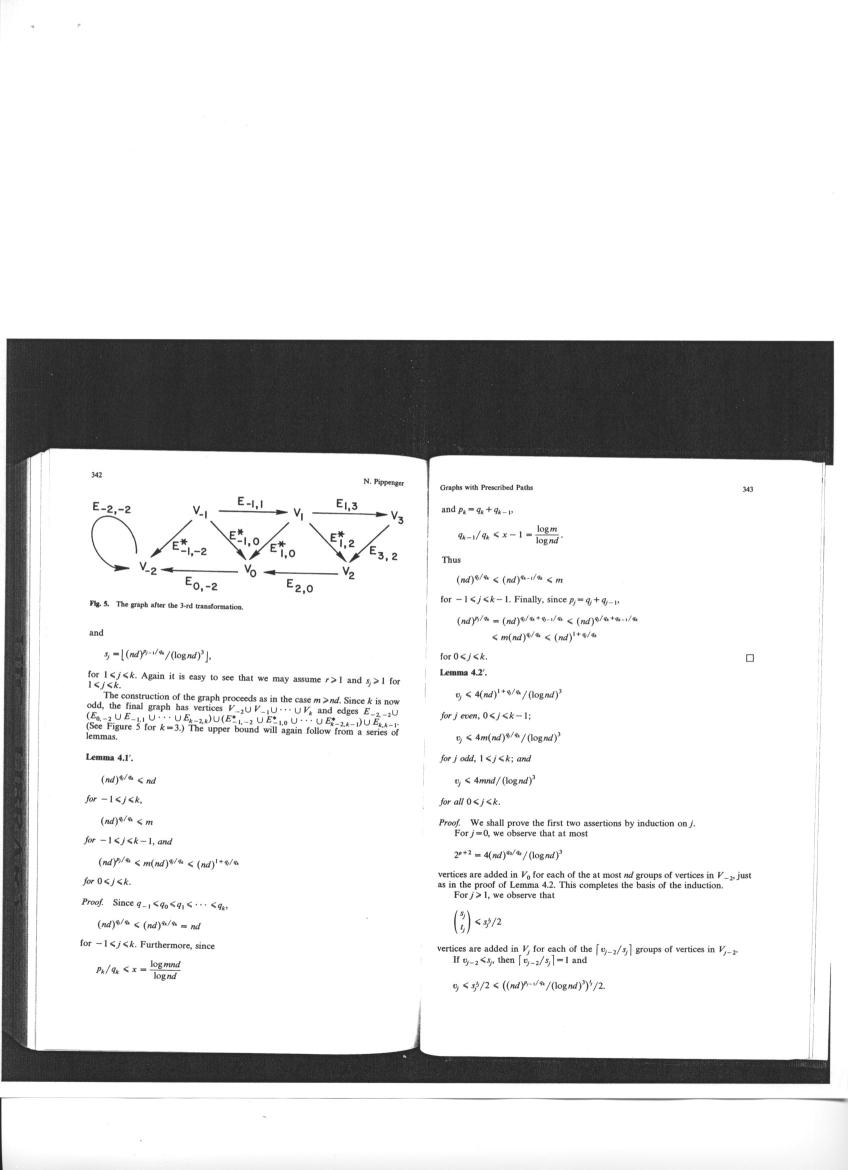 342
N. Pippenger
E-2,-2
V-1
E-1,1
V1
E1,3
V3
E*-1,-2
E*-1,0
E*1,0
E*1,2
E3,2
V-2
V0
V2
E0,-2
E2,0
Fig. 5. The graph after the 3-rd transformation.
and
s_j = ⌊(nd)^{p_{j-1}/q_k}/(log nd)^3⌋,
for 1⩽j⩽k. Again it is easy to see that we may assume r⩾1 and s_j⩾1 for
1⩽j⩽k.
The construction of the graph proceeds as in the case m⩾nd. Since k is now
odd, the final graph has vertices V_{-2}∪V_{-1}∪⋯∪V_k and edges E_{-2,-2}∪
(E_{0,-2}∪E_{-1,1}∪⋯∪E_{k-2,k})∪(E*_{-1,-2}∪E*_{-1,0}∪⋯∪E*_{k-2,k-1})∪E_{k,k-1}.
(See Figure 5 for k=3.) The upper bound will again follow from a series of
lemmas.
Lemma 4.1′.
(nd)^{q_j/q_k} ⩽ nd
for −1⩽j⩽k,
(nd)^{q_j/q_k} ⩽ m
for −1⩽j⩽k−1, and
(nd)^{p_j/q_k} ⩽ m(nd)^{q_j/q_k} ⩽ (nd)^{1+q_j/q_k}
for 0⩽j⩽k.
Proof. Since q_{-1}⩽q_0⩽q_1⩽⋯⩽q_k,
(nd)^{q_j/q_k} ⩽ (nd)^{q_k/q_k} = nd
for −1⩽j⩽k. Furthermore, since
p_k/q_k ⩽ x = log mnd / log nd
Graphs with Prescribed Paths
343
and p_k = q_k + q_{k-1},
q_{k-1}/q_k ⩽ x − 1 = log m / log nd.
Thus
(nd)^{q_j/q_k} ⩽ (nd)^{q_{k-1}/q_k} ⩽ m
for −1⩽j⩽k−1. Finally, since p_j = q_j + q_{j-1},
(nd)^{p_j/q_k} = (nd)^{q_j/q_k+q_{j-1}/q_k} ⩽ (nd)^{q_j/q_k+q_{k-1}/q_k}
⩽ m(nd)^{q_j/q_k} ⩽ (nd)^{1+q_j/q_k}
for 0⩽j⩽k. □
Lemma 4.2′.
v_j ⩽ 4(nd)^{1+q_j/q_k}/(log nd)^3
for j even, 0⩽j⩽k−1;
v_j ⩽ 4m(nd)^{q_j/q_k}/(log nd)^3
for j odd, 1⩽j⩽k; and
v_j ⩽ 4mnd/(log nd)^3
for all 0⩽j⩽k.
Proof. We shall prove the first two assertions by induction on j.
For j=0, we observe that at most
2^{r+2} = 4(nd)^{q_0/q_k}/(log nd)^3
vertices are added in V_0 for each of the at most nd groups of vertices in V_{-2}, just
as in the proof of Lemma 4.2. This completes the basis of the induction.
For j⩾1, we observe that
(s_j t_j) ⩽ s_j^{t_j}/2
vertices are added in V_j for each of the ⌈v_{j-2}/s_j⌉ groups of vertices in V_{j-2}.
If v_{j-2}⩽s_j, then ⌈v_{j-2}/s_j⌉=1 and
v_j ⩽ s_j^{t_j}/2 ⩽ ((nd)^{p_{j-1}/q_k}/(log nd)^3)^{t_j}/2.